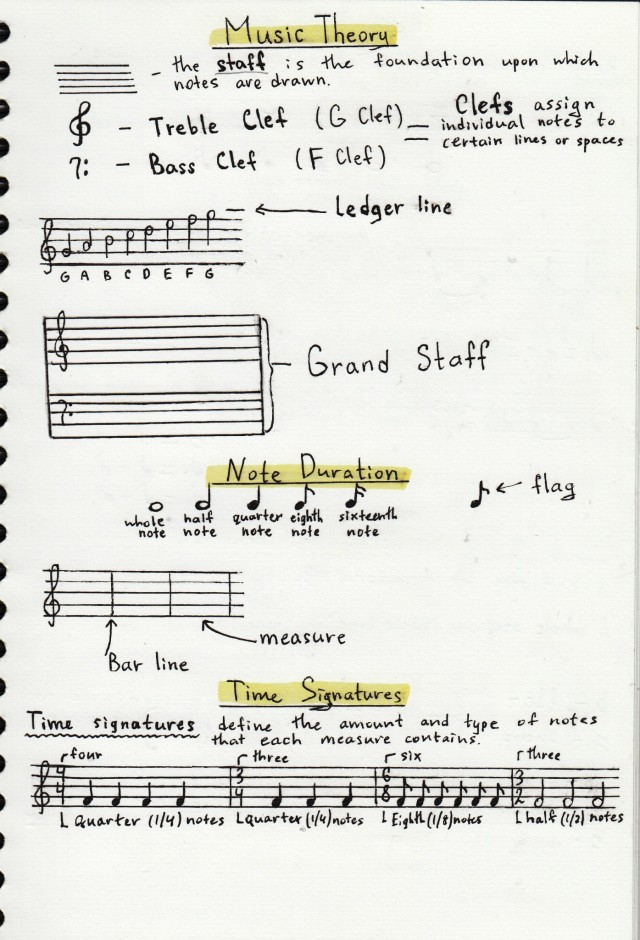 Music Theory
- the staff is the foundation upon which
notes are drawn.
- Treble Clef (G Clef)
- Bass Clef (F Clef)
Clefs assign
individual notes to
certain lines or spaces
Ledger line
G A B C D E F G
Grand Staff
Note Duration
whole note
half note
quarter note
eighth note
sixteenth note
flag
measure
Bar line
Time Signatures
Time signatures define the amount and type of notes
that each measure contains.
four three six three
4 3 6 3
4 4 8 2
Quarter (1/4) notes Quarter (1/4) notes Eighth (1/8) notes half (1/2) notes